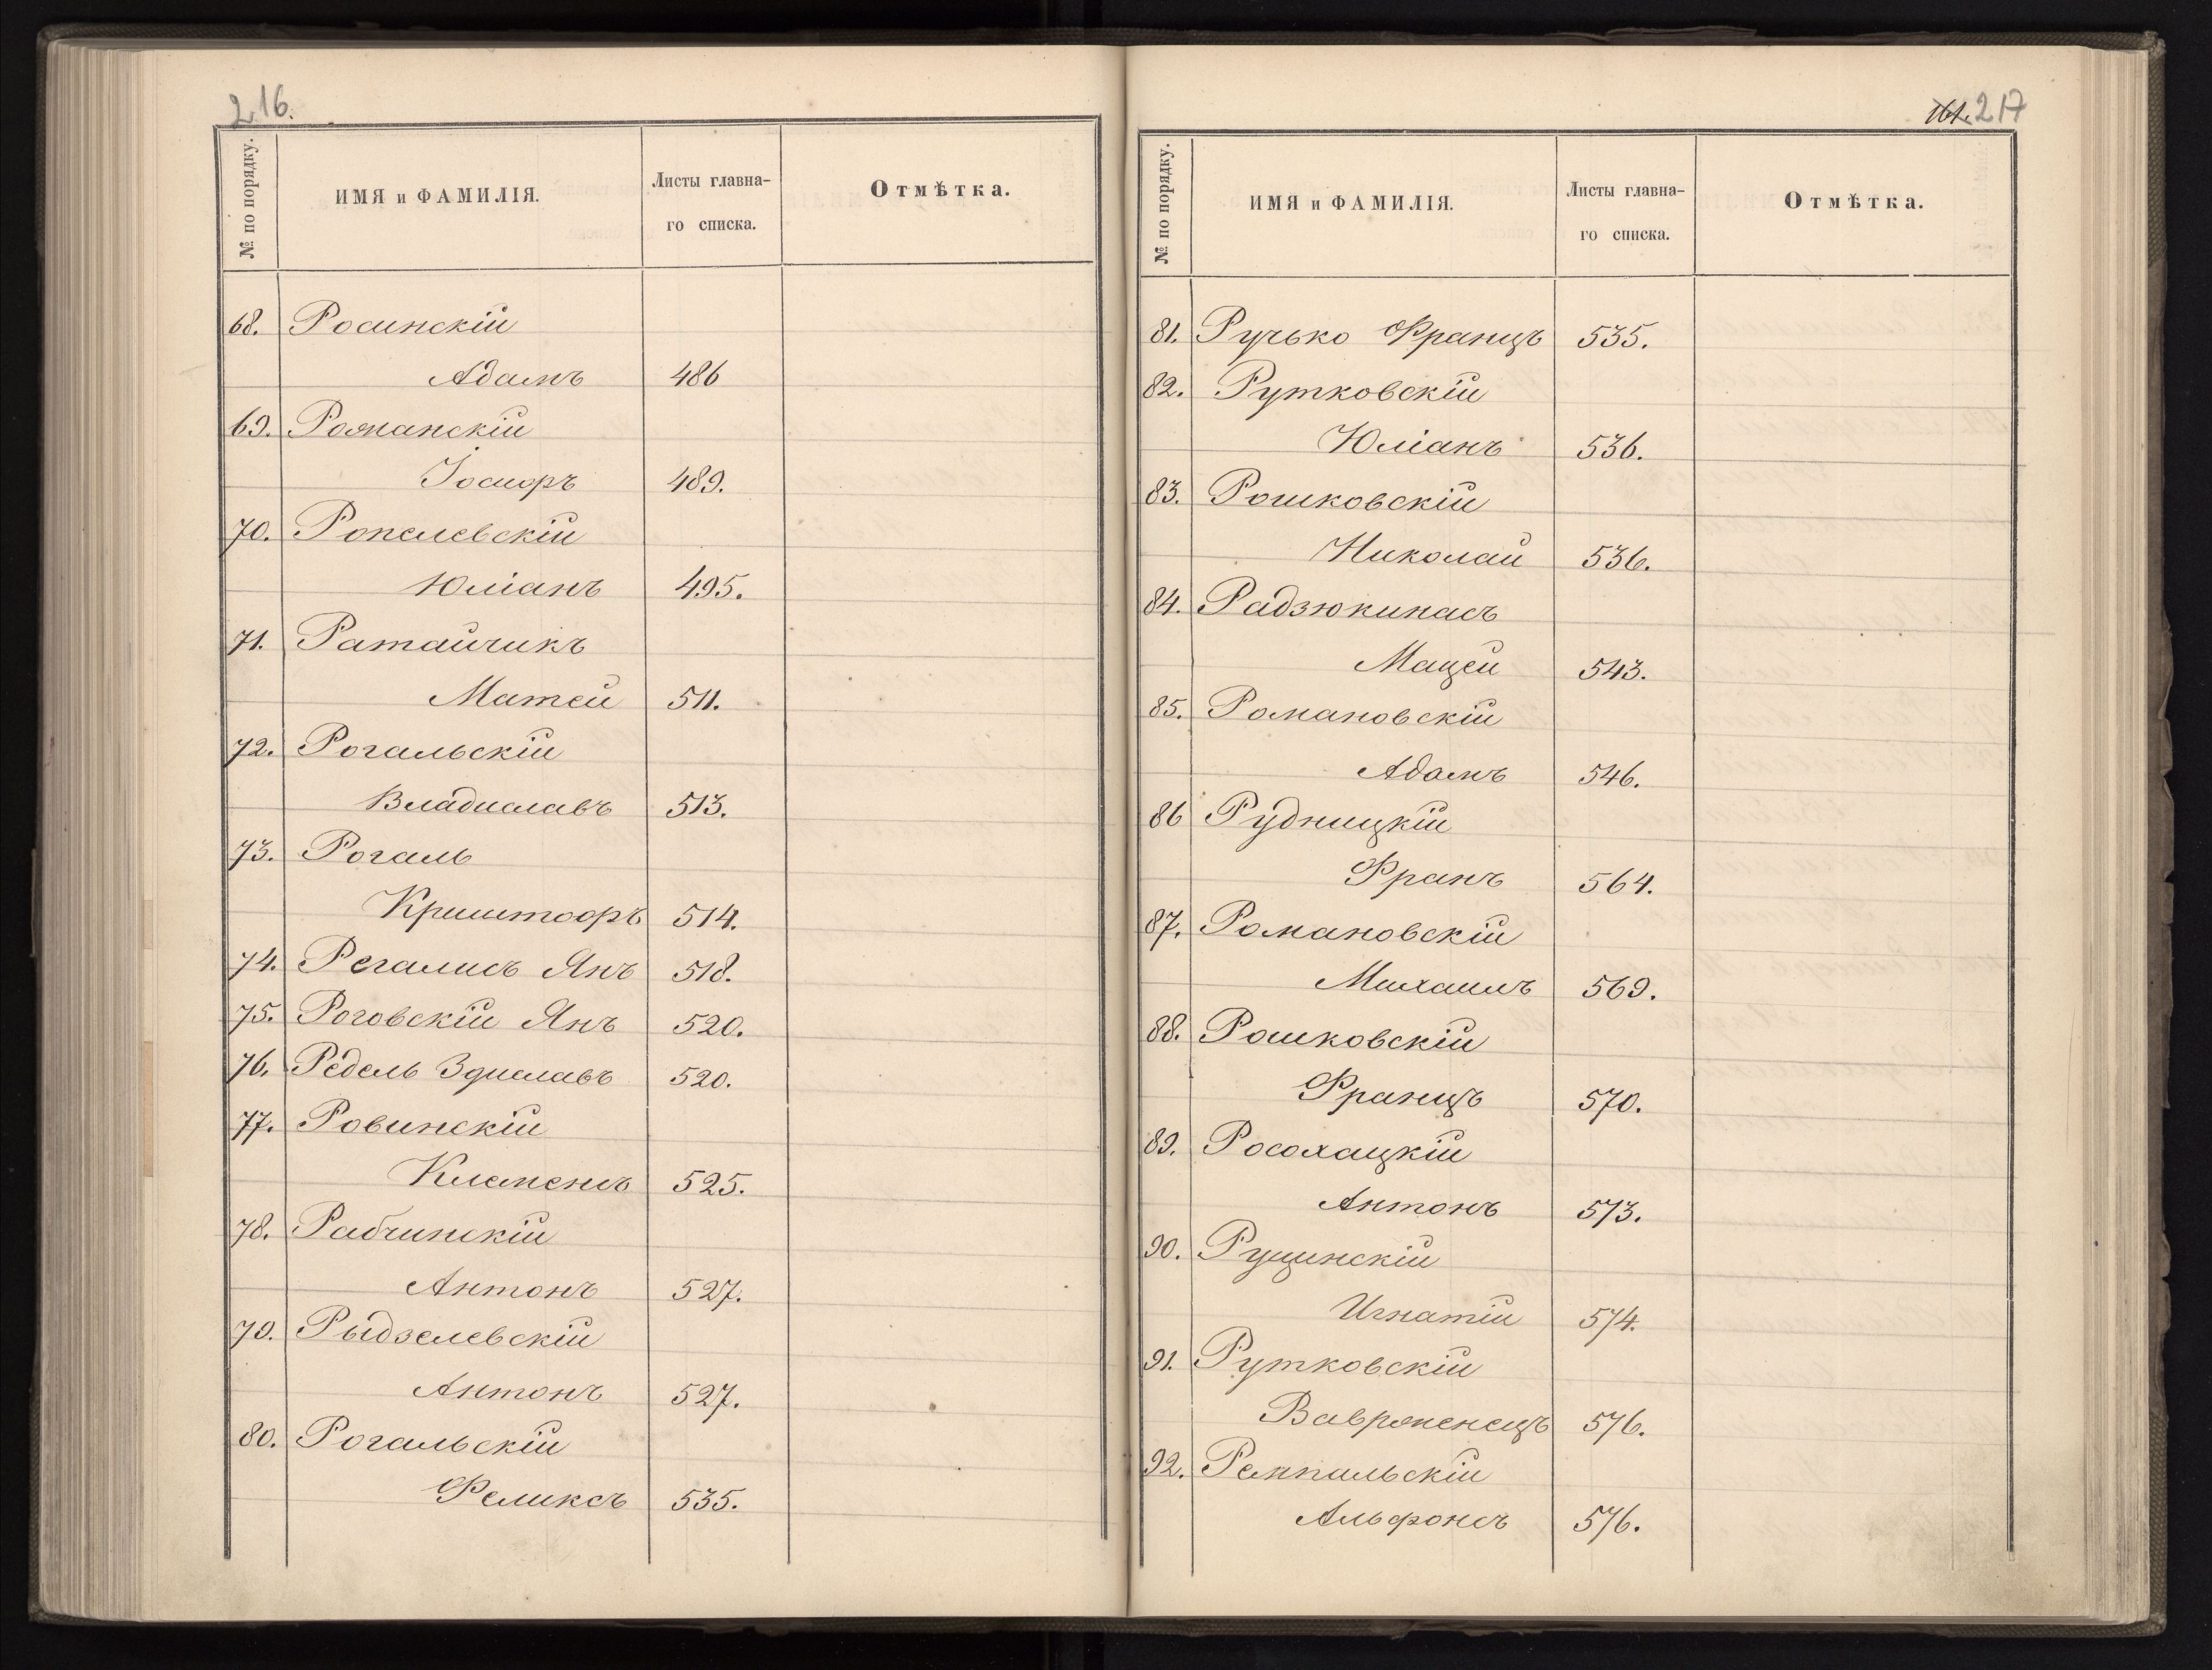 216.
№ по порядку.
ИМЯ и ФАМИЛІЯ.
Листы главна-
го списка.
Отмѣтка.
68. Росинскій
Адамъ 486
69. Рожанскій
Іосифъ 489.
70. Ропелевскій
Юліанъ 495.
71. Ратайчикъ
Матей 511.
72. Рогальскій
Владиславъ 513.
73. Рогаль
Криштофъ 514.
74. Регалисъ Янъ 518.
75. Роговскій Янъ 520.
76. Редель Здиславъ 520.
77. Ровинскій
Клеменсъ 525.
78. Рабчинскій
Антонъ 527.
79. Рыдзелевскій
Антонъ 527.
80. Рогальскій
Феликсъ 535.
161. 217
№ по порядку.
ИМЯ и ФАМИЛІЯ.
Листы главна-
го списка.
Отмѣтка.
81. Ручько Францъ 535.
82. Рутковскій
Юліанъ 536.
83. Рошковскій
Николай 536.
84. Радзюкинасъ
Мацей 543.
85. Романовскій
Адамъ 546.
86 Рудницкій
Франъ 564.
87. Романовскій
Михаилъ 569.
88. Рошковскій
Францъ 570.
89. Росохацкій
Антонъ 573.
90. Рущинскій
Игнатій 574.
91. Рутковскій
Ваврженецъ 576.
92. Ремпальскій
Альфонсъ 576.